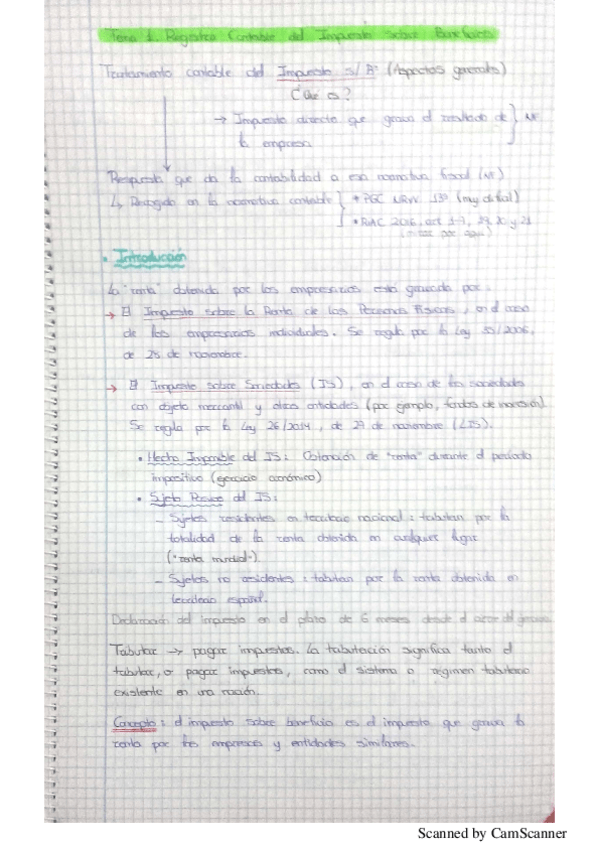 Tema 1. Registro Contable del Impuesto Sobre Beneficios
Tratamiento contable del Impuesto s/ Bº (Aspectos generales)
¿Qué es?
→ Impuesto directo que grava el resultado de } NF
la empresa
Respuesta que da la contabilidad a esa normativa fiscal (NF)
↳ Recogido en la normativa contable { * PGC NRV 13ª (muy dificil)
* RIAC 2016, art 1-7, 19, 20 y 21
• Introducción
La "renta" obtenida por los empresarios está gravada por:
→ El Impuesto sobre la Renta de las Personas Físicas, en el caso
de los empresarios individuales. Se regula por la Ley 35/2006,
de 28 de noviembre.
→ El Impuesto sobre Sociedades (IS), en el caso de las sociedades
con objeto mercantil y otras entidades (por ejemplo, fondos de inversión)
Se regula por la Ley 26/2014, de 27 de noviembre (LIS).
• Hecho Imponible del IS: Obtención de "renta" durante el periodo
impositivo (ejercicio económico)
• Sujeto Pasivo del IS:
– Sujetos residentes en territorio nacional: tributan por la
totalidad de la renta obtenida en cualquier lugar
("renta mundial").
– Sujetos no residentes: tributan por la renta obtenida en
territorio español.
Declaración del impuesto en el plazo de 6 meses desde el cierre del
Tributar → pagar impuestos. La tributación significa tanto el
tributar, o pagar impuestos, como el sistema o régimen tributario
existente en una nación.
Concepto: el impuesto sobre beneficio es el impuesto que grava la
renta por las empresas y entidades similares.
Scanned by CamScanner